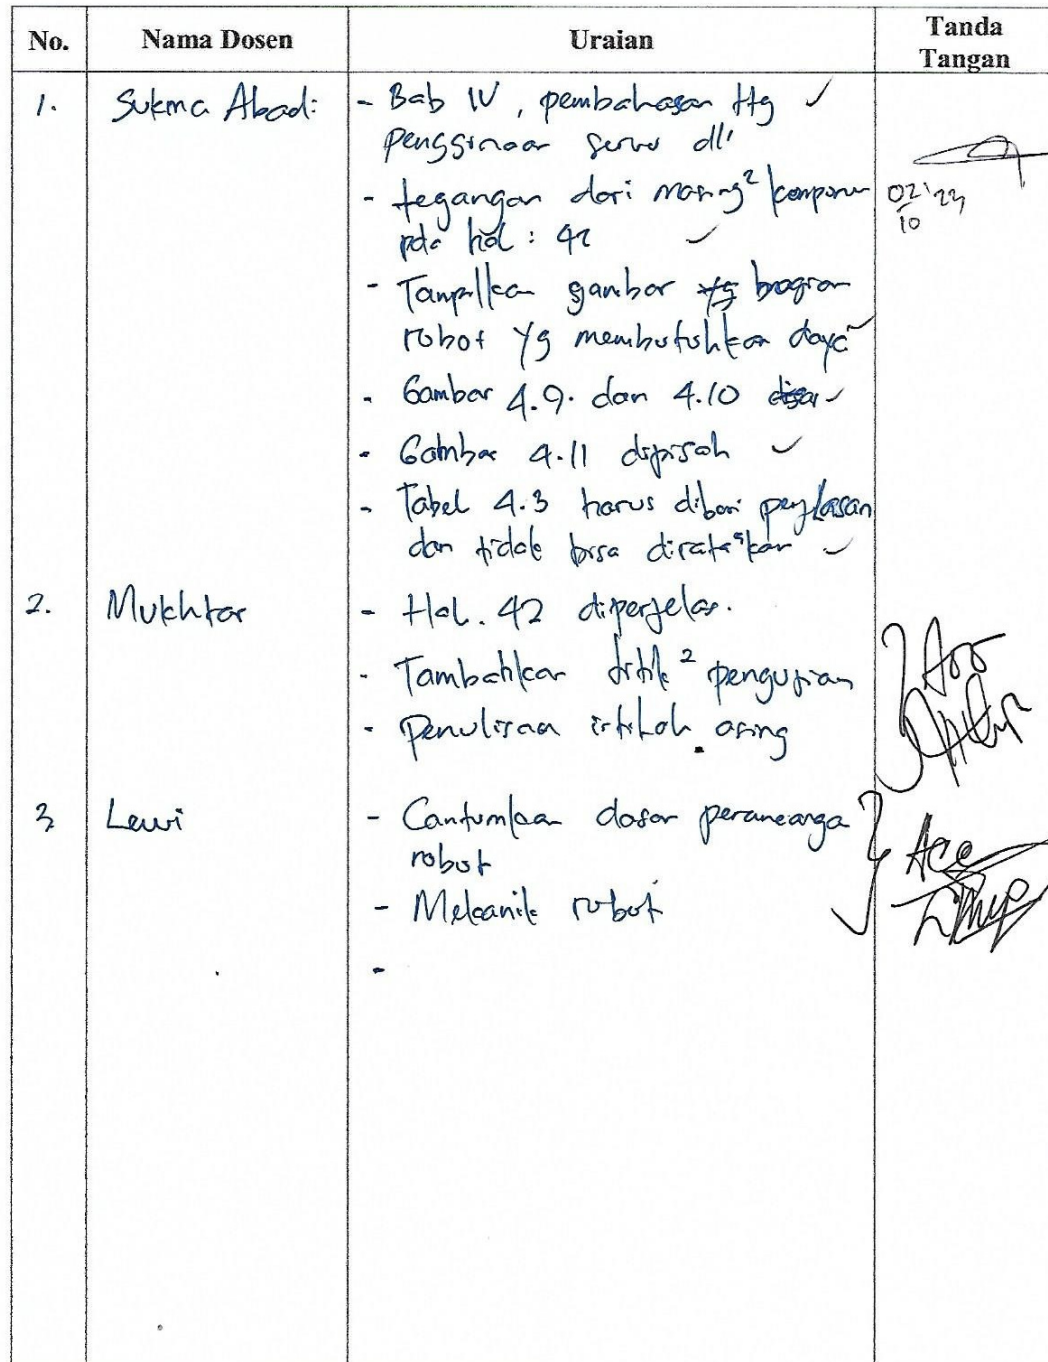 No. Nama Dosen Uraian Tanda Tangan
1. Sukma Abadi - Bab IV, pembahasan ttg
penggunaan servo dll
- tegangan dari masing² komponen
pda hal : 42
- Tampilkan gambar bagian
robot yg membutuhkan daya
02/10 '23
- Gambar 4.9. dan 4.10
- Gambar 4.11 dipisah
- Tabel 4.3 harus diberi penjelasan
dan tidak bisa dirata²kan
2. Mukhtar - Hal. 42 diperjelas.
- Tambahkan titik² pengujian
- Penulisan istilah asing
3 Lewi - Cantumkan dasar perancanga
robot
- Mekanik robot
-
Acc